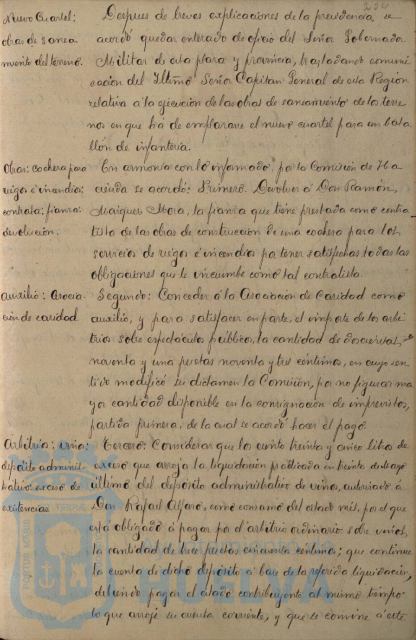 Nuevo Cuartel:
obras de sanea
miento del terreno.
Despues de breves explicaciones de la presidencia se
acordó quedar enterado de oficio del Señor Gobernador
Militar de esta plaza y provincia, trasladando comuni
cacion del Iltmo Señor Capitan General de esta Region
relativa a la ejecucion de las obras de saneamiento de los terre
nos en que ha de emplazarse el nuevo cuartel para un bata
llón de infanteria.
Obras: cochera para
riegos é incendios:
contrata: fianza:
devolucion.
En armonia con lo informado por la Comision de Ha
cienda se acordó: Primero. Devolver á Don Ramón
Maigues Mora, la fianza que tiene prestada como contra
tista de las obras de construccion de una cochera para los
servicios de riegos é incendios por tener satisfechas todas las
obligaciones que le incumbe como tal contratista.
Auxilio: Asocia
cion de caridad.
Segundo: Conceder á la Asociacion de Caridad como
auxilio, y para satisfacer en parte, el importe de los arbi
trios sobre espectáculos públicos, la cantidad de doscientas
noventa y una pesetas noventa y tres centimos, en cuyo sen
tido modificó su dictamen la Comision, por no figurar ma
yor cantidad disponible en la consignacion de imprevistos,
partida primera, de la cual se acordó hacer el pago.
Arbitrios: vinos:
depósito administ
trativo: exceso de
existencias.
Tercero: Considerar que los ciento treinta y cinco litros de
exceso que arroja la liquidación practicada en treinta de
último del depósito administrativo de vinos, autorizado á
Don Rafael Alfaro, como consumo del citado mes, por el que
está obligado á pagar por el arbitrio ordinario sobre vinos,
la cantidad de tres pesetas cincuenta centimos; que continue
la cuenta de dicho depósito á base de la referida liquidación,
debiendo pagar el citado contribuyente al mismo tiempo
lo que arroje su cuenta corriente, y que se conmine á este
AJUNTAMENT DE